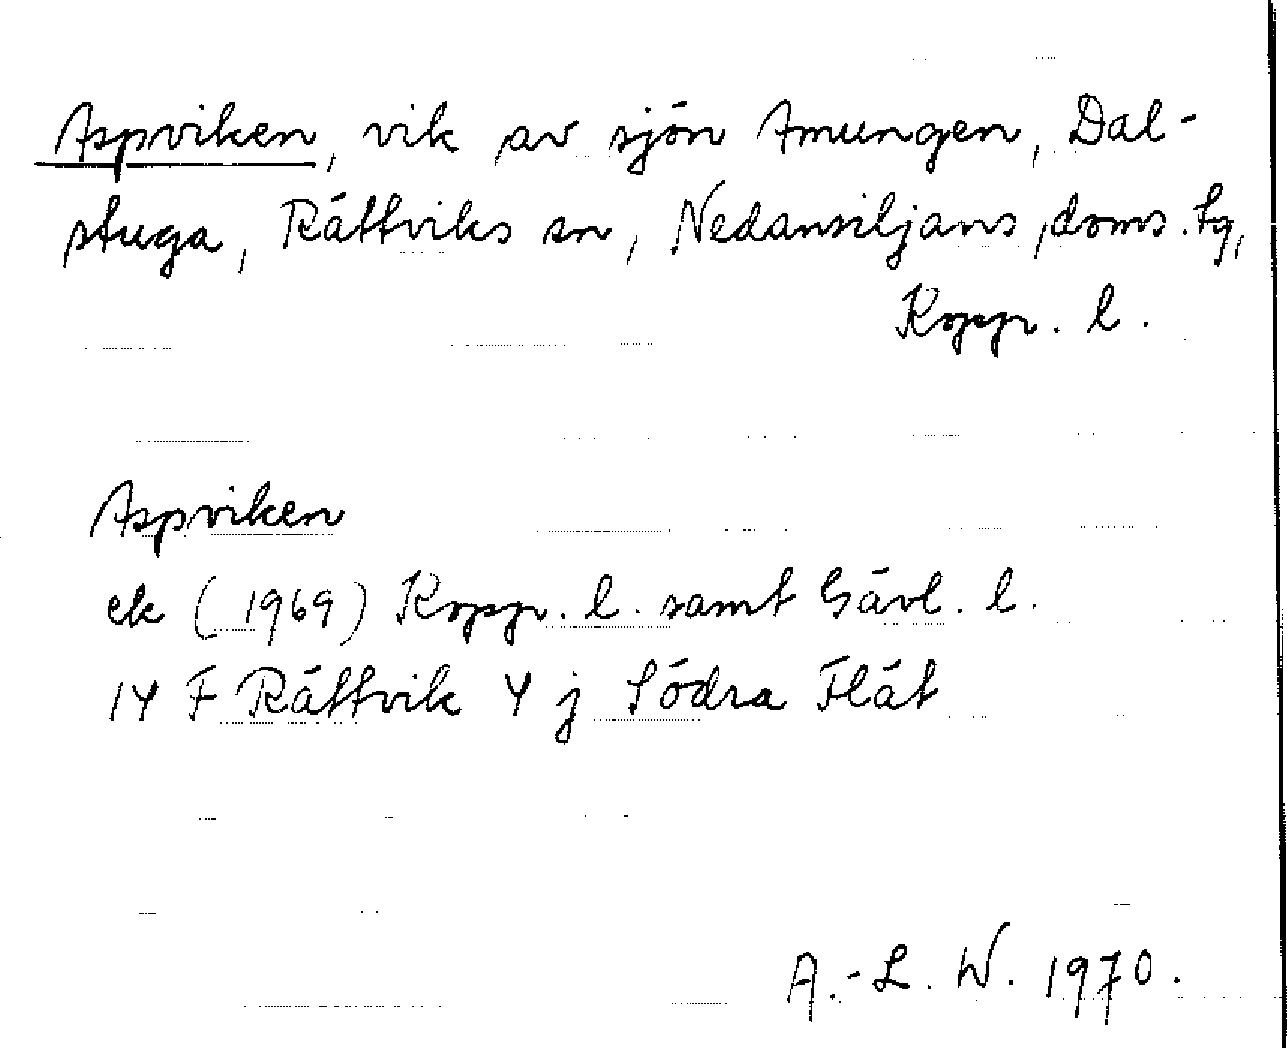 Aspviken, vik av sjön Amungen, Dal-
stuga, Rättviks sn, Nedansiljans doms. tg,
Kopp. l.
Aspviken
ek (1969) Kopp. l. samt Gävl. l.
14 F Rättvik 4 j Södra Flät
A.-L. W. 1970.